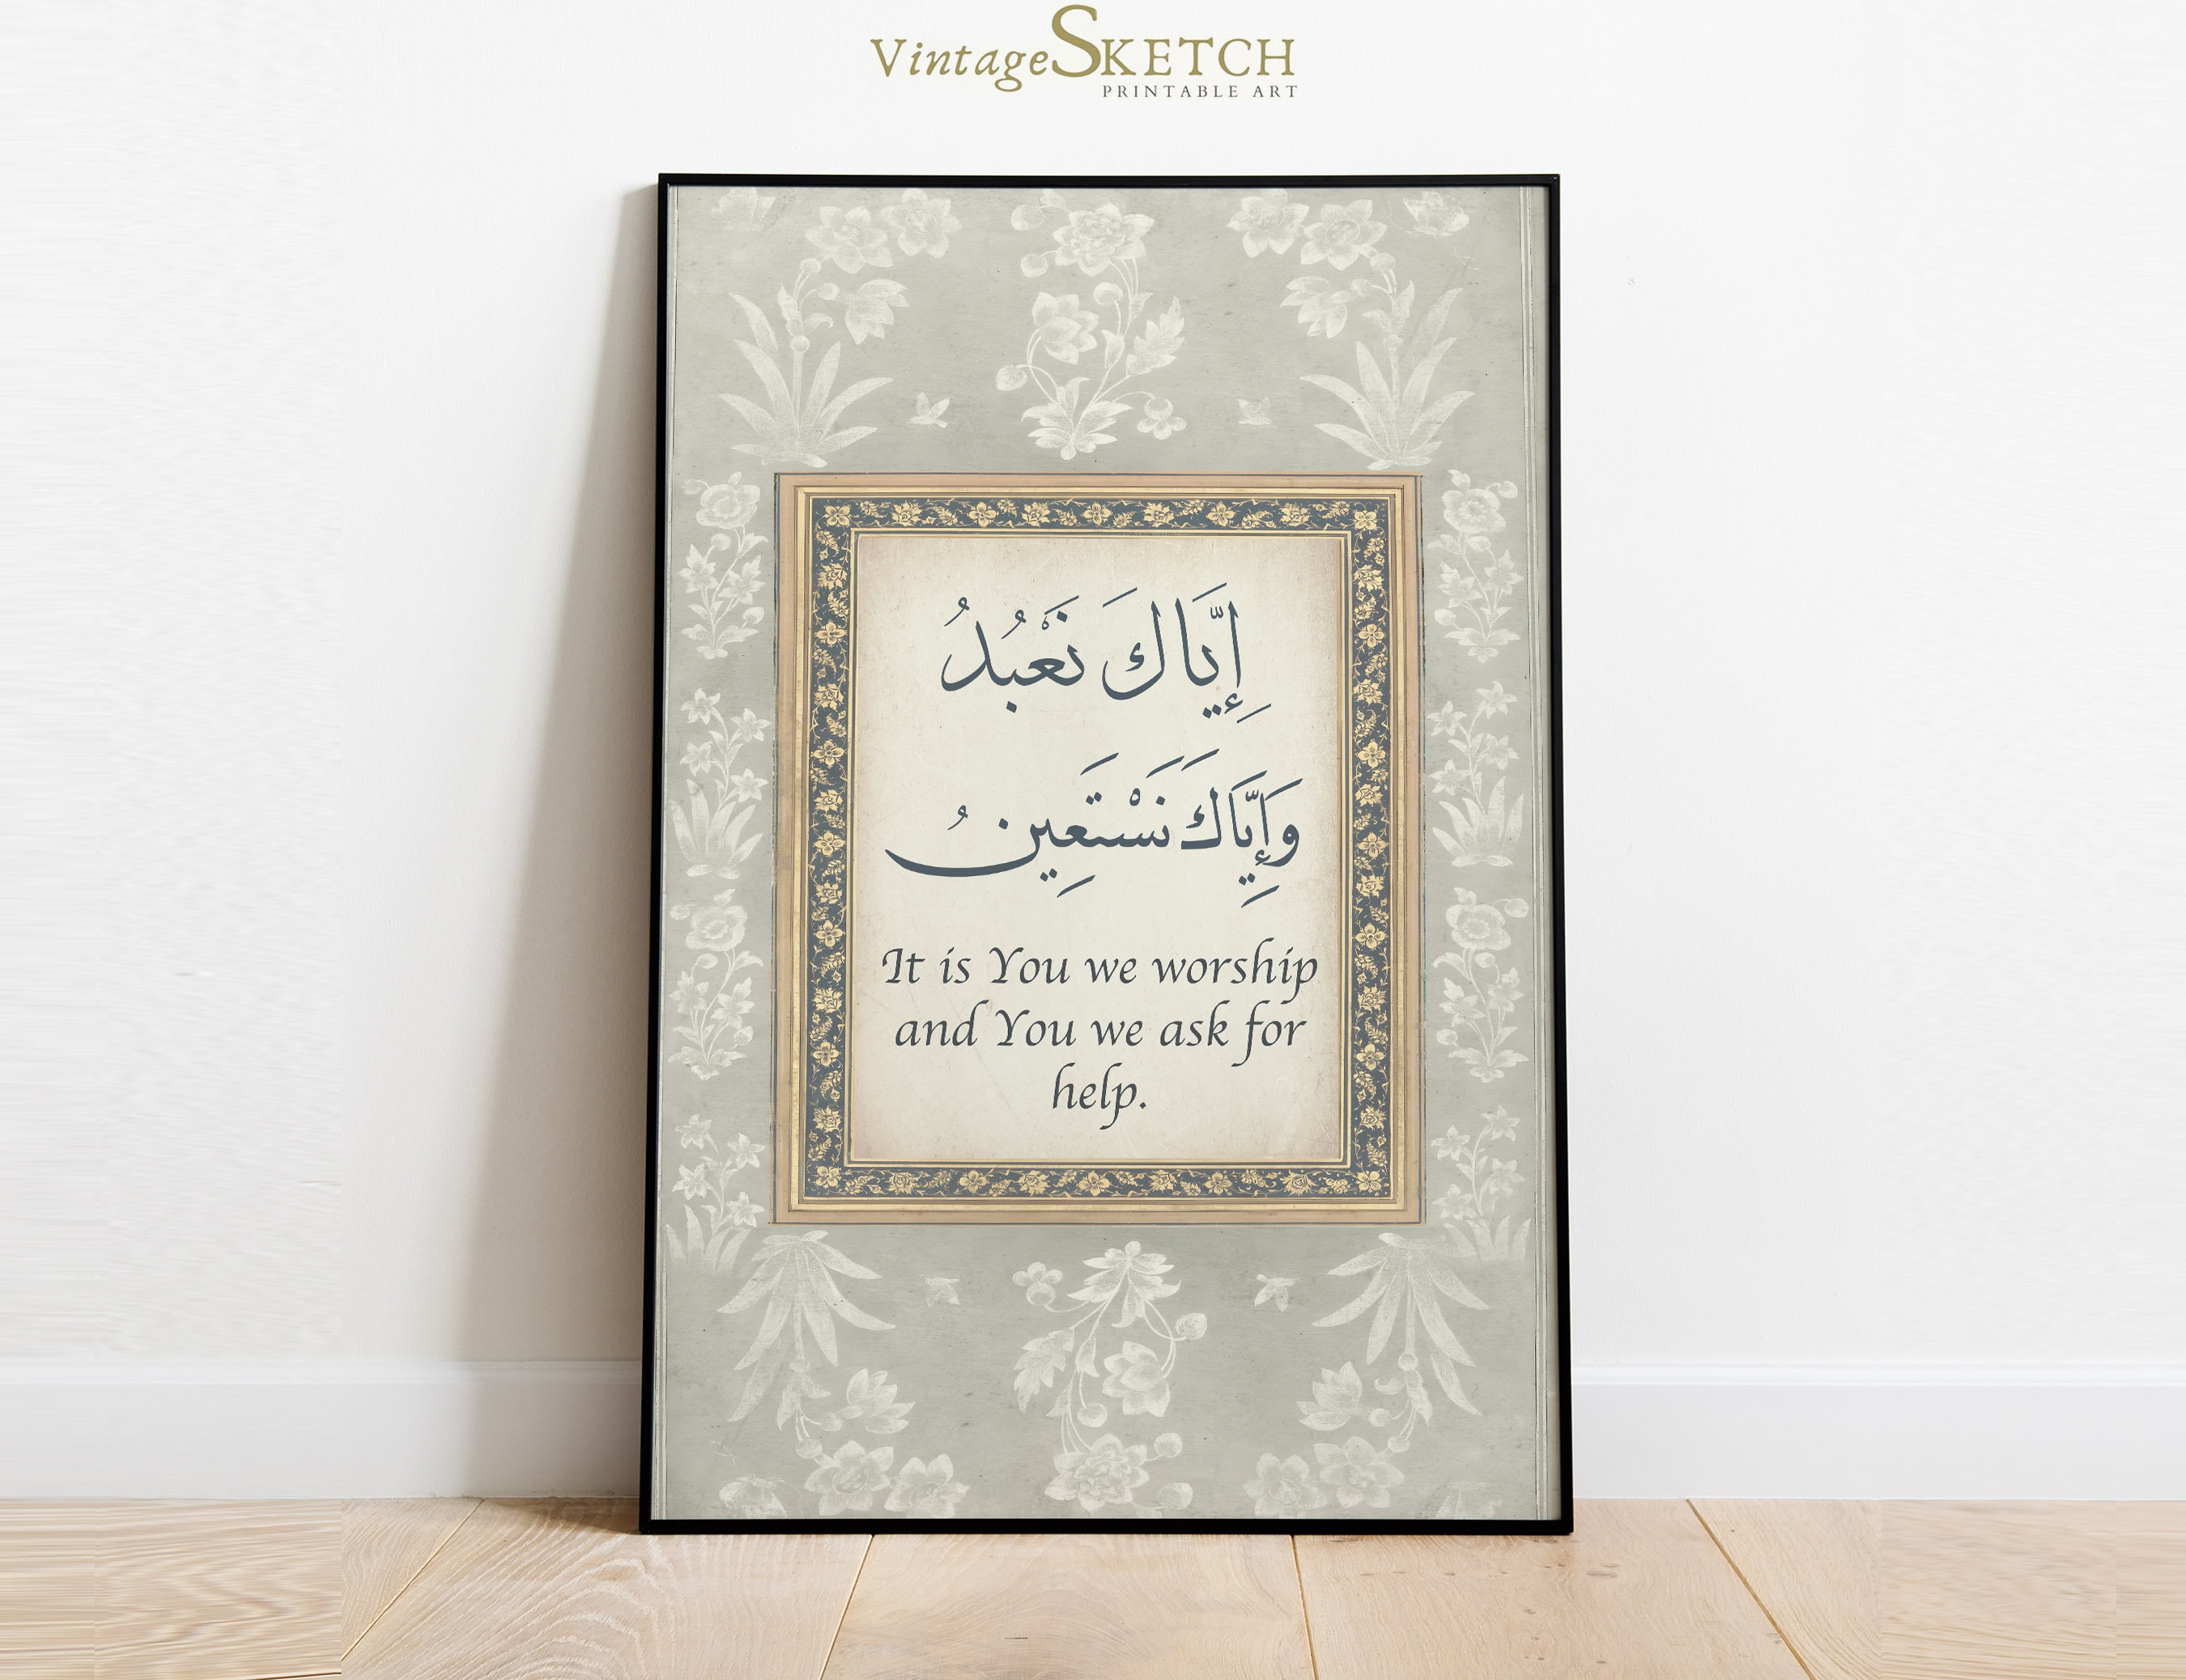 VintageSKETCH
PRINTABLE ART
إِيَّاكَ نَعْبُدُ
وَإِيَّاكَ نَسْتَعِينُ
It is You we worship
and You we ask for
help.